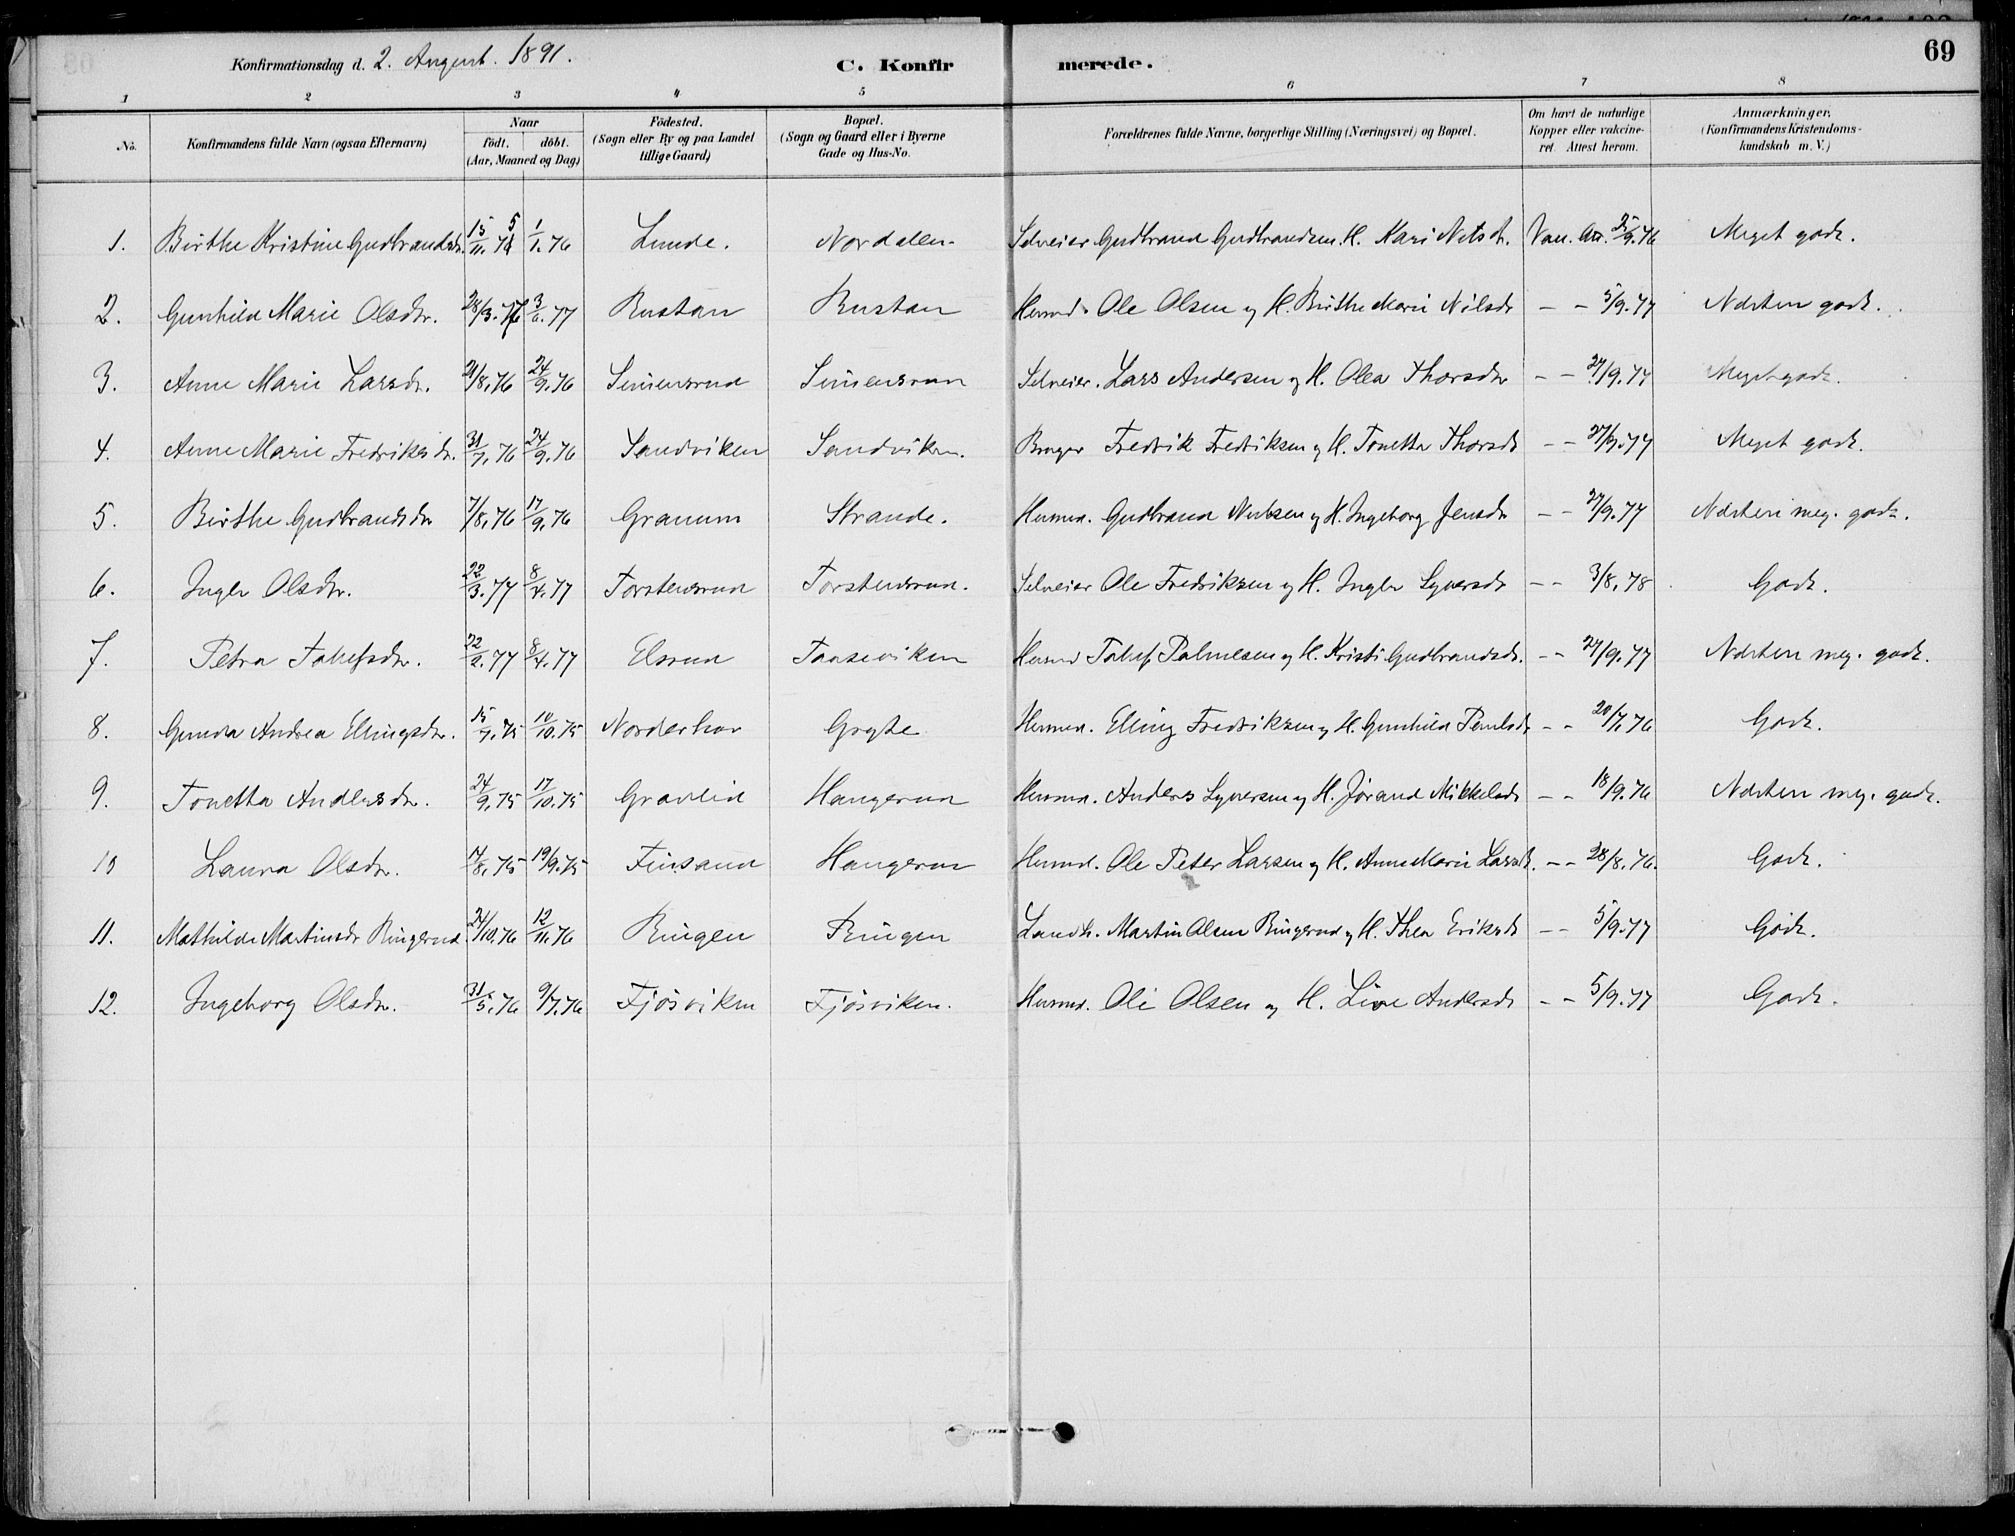 69
Konfirmationsdag d. 2. August. 1891.
C. Konfirmerede.
1 2 3 4 5 6 7 8
No. Konfirmandens fulde Navn (ogsaa Efternavn) Naar födt. döbt. (Aar, Maaned og Dag) Födested. (Sogn eller By og paa Landet tillige Gaard) Bopæl. (Sogn og Gaard eller i Byerne Gade og Hus-No. Forældrenes fulde Navne, borgerlige Stilling (Næringsvei) og Bopæl. Om havt de naturlige Kopper eller vakcineret. Attest herom. Anmærkninger. (Konfirmandens Kristendomskundskab m. V.)
1. Birthe Kristine Gudbrandsdr. 15/11.75 1/1.76 Lunde. Norddalen. Selveier Gudbrand Gudbrandsen. H. Kari Nilsdr. Vac. Att. 25/9.76 Meget godt.
2. Gunhild Marie Olsdtr. 28/3.77 3/6.77 Rustan Rustan Husmd. Ole Olsen og H. Birthe Marie Nilsdr - - 5/9.77 Næsten godt.
3. Anne Marie Larsdr. 21/8.76 24/9.76 Simensrud Simensrud Selveier. Lars Andersen og H. Olea Thorsdr - - 27/9.77 Meget godt.
4. Anne Marie Fredriksdr. 31/7.76 24/9.76 Sandviken Sandviken. Bruger Fredrik Fredriksen og H. Tonetta Thorsdr - - 27/9.77 Meget godt.
5. Birthe Gudbrandsdr 7/8.76 17/9.76 Granum Strande. Husmd. Gudbrand Nilsen og H. Ingeborg Jensdr - - 27/9.77 Næsten meg. godt.
6. Ingler Olsdtr. 22/3.77 8/4.77 Torstensrud Torstensrud. Selveier Ole Fredriksen og H. Ingler Syversdr - - 3/8.78 Godt.
7. Petra Tolefsdr. 22/2.77 8/4.77 Elsrud Taaseviken Husmd Tolef Palmesen og H. Kristi Gudbrandsdr. - - 27/9.77 Næsten meg. godt.
8. Gunda Andrea Ellingsdr. 15/7.75 10/10.75 Norderhov Gryte Husmd. Elling Fredriksen og H. Gunhild Paulsdr - - 20/7.76 Godt.
9. Tonetta Andersdr. 24/9.75 17/10.75 Gravlid Haugerud Husmd. Anders Syversen og H. Jørand Mikkelsdr - - 18/9.76 Næsten meg. godt.
10 Laura Olsdr. 14/8.75 19/9.75 Finsand Haugerud Husmd. Ole Peter Larsen og H. Anne Marie Larsdr. - - 28/8.76. Godt.
11. Mathilde Martinsdr Ringerud 24/10.76 12/11.76 Ringen Ringen Landh. Martin Olsen Ringerud og H. Thea Eriksdr - - 5/9.77 Godt.
12. Ingeborg Olsdr. 31/5.76 9/7.76 Fjøsviken Fjøsviken. Husmd. Ole Olsen og H. Live Andersdr - - 5/9.77 Godt.